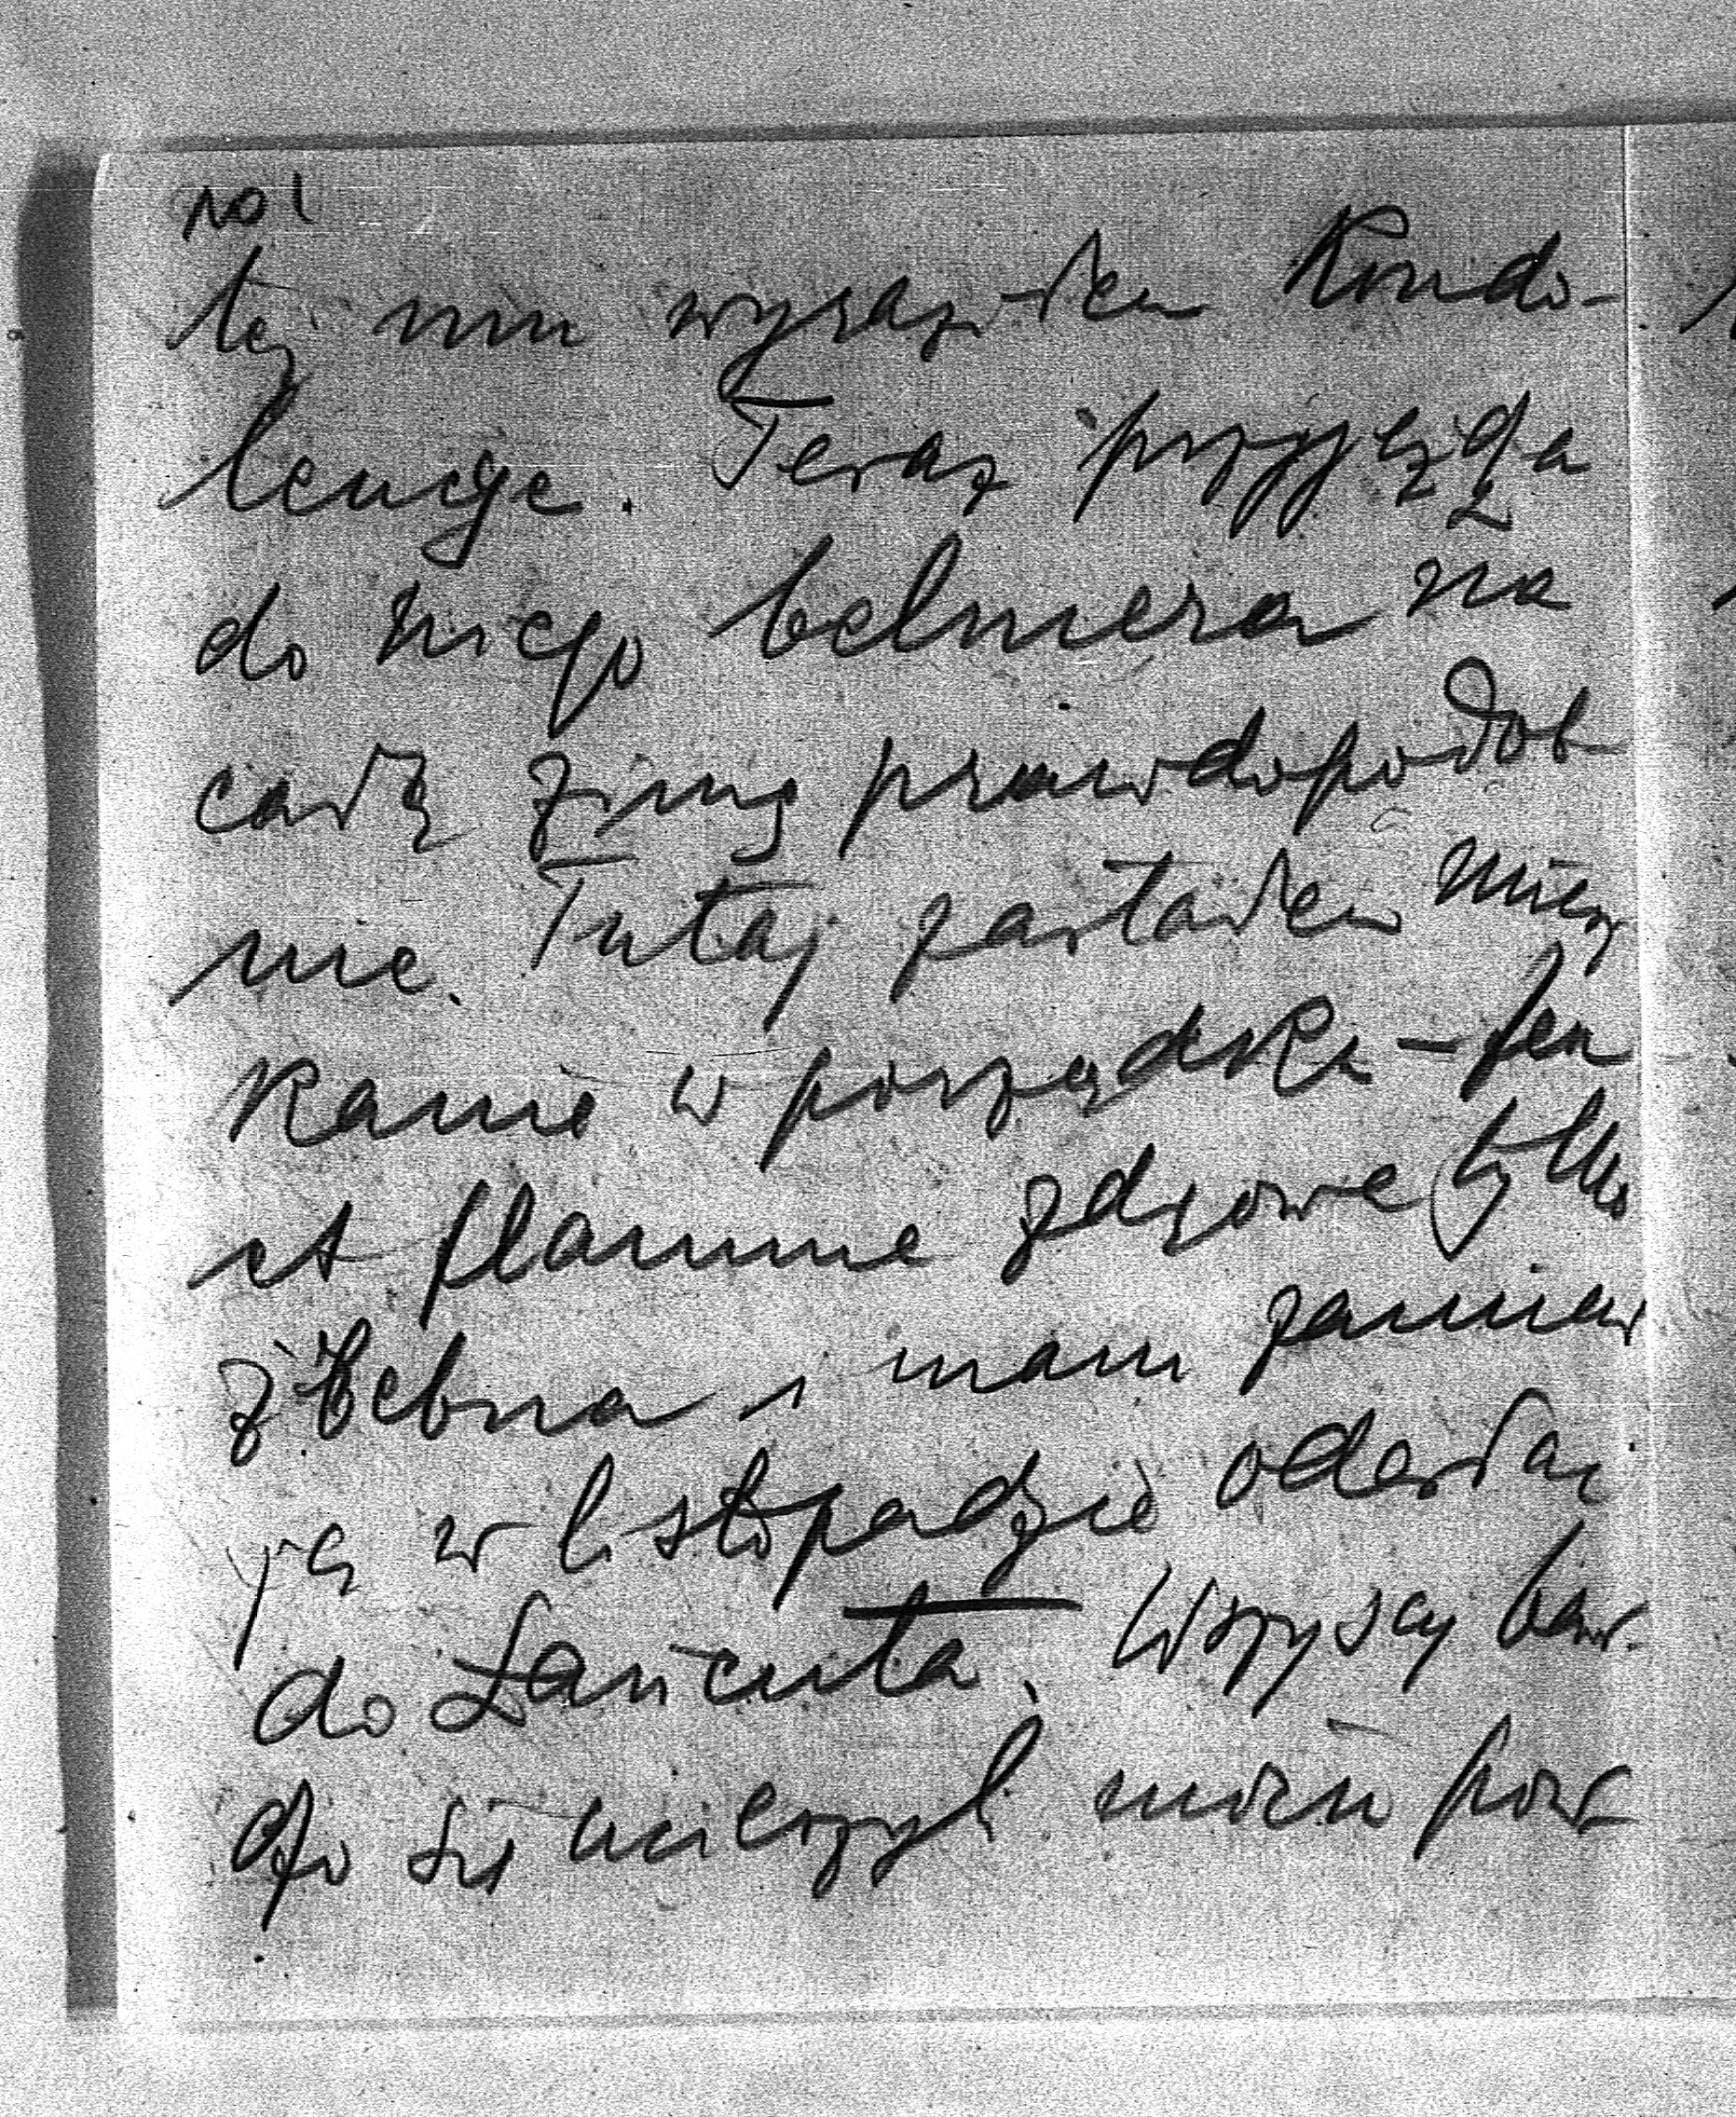 też mu wyraziłem Kondo-
lencje. Teraz przyjeżdża
do niego belmera na
całą zimę prawdopodob
nie. Tutaj zastałem miesz
kanie w porządku – fem
et flamme zdrowe tylko
źrebna i mam zamiar
ją w listopadzie odesłać
do Łańcuta. Wszyscy bar
dzo się ucieszyli moim pow